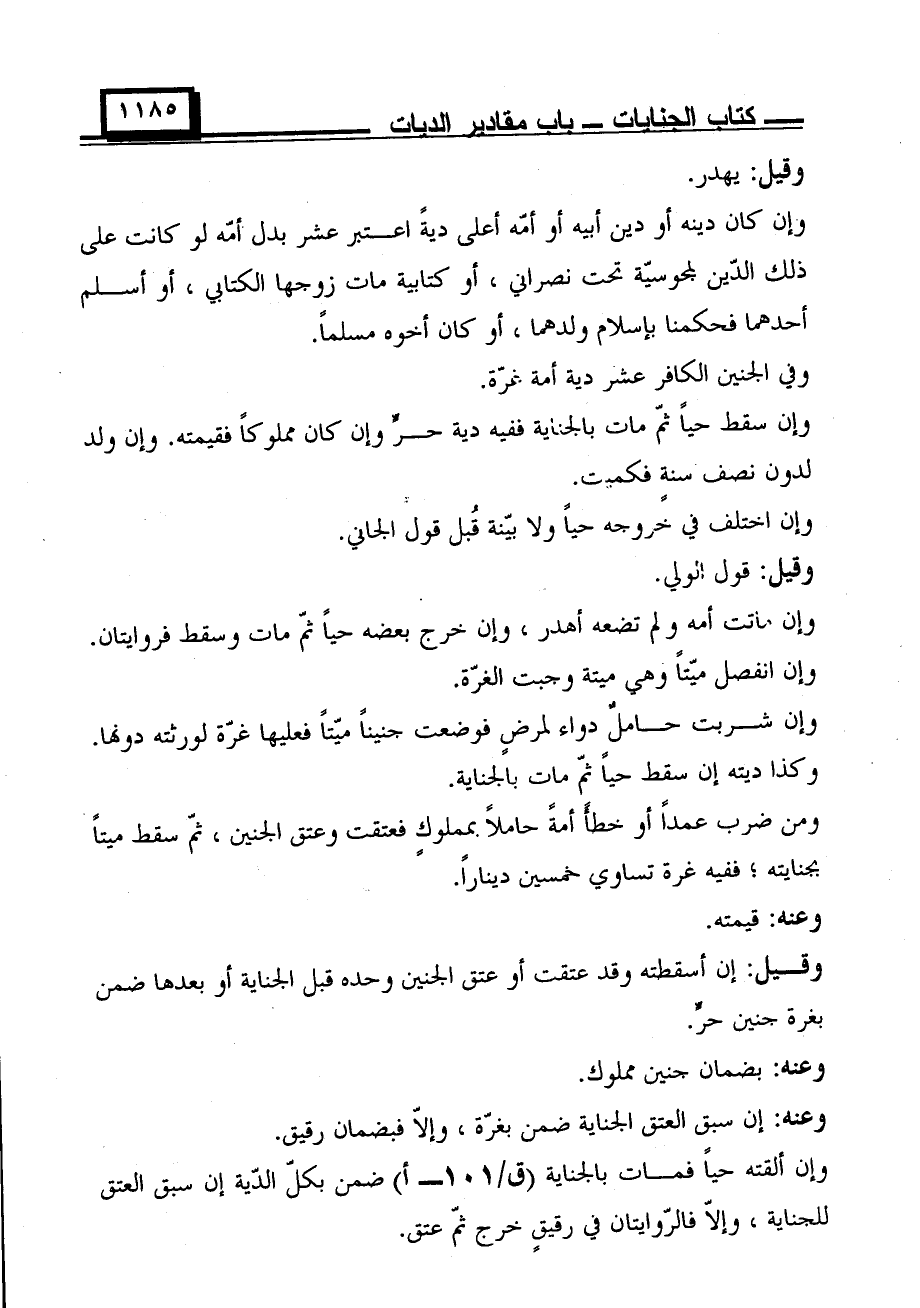 ١١٨٥
كتاب الجنايات – باب مقادير الديات
وقيل: يهدر.
وإن كان دينه أو دين أبيه أو أمّه أعلى ديةً اعـتبر عشر بدل أمّه لو كانت على
ذلك الدّين لمجوسيّة تحت نصراني ، أو كتابية مات زوجها الكتابي ، أو أسـلم
أحدهما فحكمنا بإسلام ولدهما ، أو كان أخوه مسلماً.
وفي الجنين الكافر عشر دية أمة غرّة.
وإن سقط حياً ثمّ مات بالجناية ففيه دية حـرٍّ وإن كان مملوكاً فقيمته. وإن ولد
لدون نصف سنةٍ فكميت.
وإن اختلف في خروجه حياً ولا بيّنة قُبل قول الجاني.
وقيل: قول الولي.
وإن ماتت أمه ولم تضعه أهدر ، وإن خرج بعضه حياً ثمّ مات وسقط فروايتان.
وإن انفصل ميّتاً وهي ميتة وجبت الغرّة.
وإن شـربت حـاملٌ دواء لمرضٍ فوضعت جنيناً ميّتاً فعليها غرّة لورثته دونها.
وكذا ديته إن سقط حياً ثمّ مات بالجناية.
ومن ضرب عمداً أو خطأً أمةً حاملاً بمملوكٍ فعتقت وعتق الجنين ، ثمّ سقط ميتاً
بجنايته ؛ ففيه غرة تساوي خمسين ديناراً.
وعنه: قيمته.
وقـيل: إن أسقطته وقد عتقت أو عتق الجنين وحده قبل الجناية أو بعدها ضمن
بغرة جنين حرٍّ.
وعنه: بضمان جنين مملوك.
وعنه: إن سبق العتق الجناية ضمن بغرّة ، وإلاّ فبضمان رقيق.
وإن ألقته حياً فمـات بالجناية (ق/١٠١ـ أ) ضمن بكلّ الدّية إن سبق العتق
للجناية ، وإلاّ فالرّوايتان في رقيقٍ خرج ثمّ عتق.